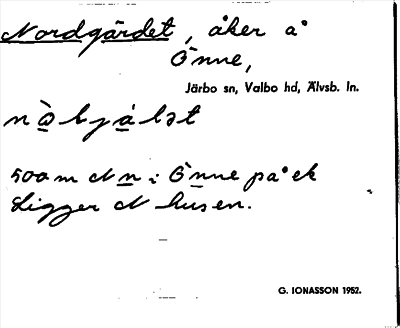 Nordgärdet, åker å
Önne,
Järbo sn, Valbo hd, Älvsb. ln.
500 m N n: Önne på ek
Ligger N husen.
G. IONASSON 1952.